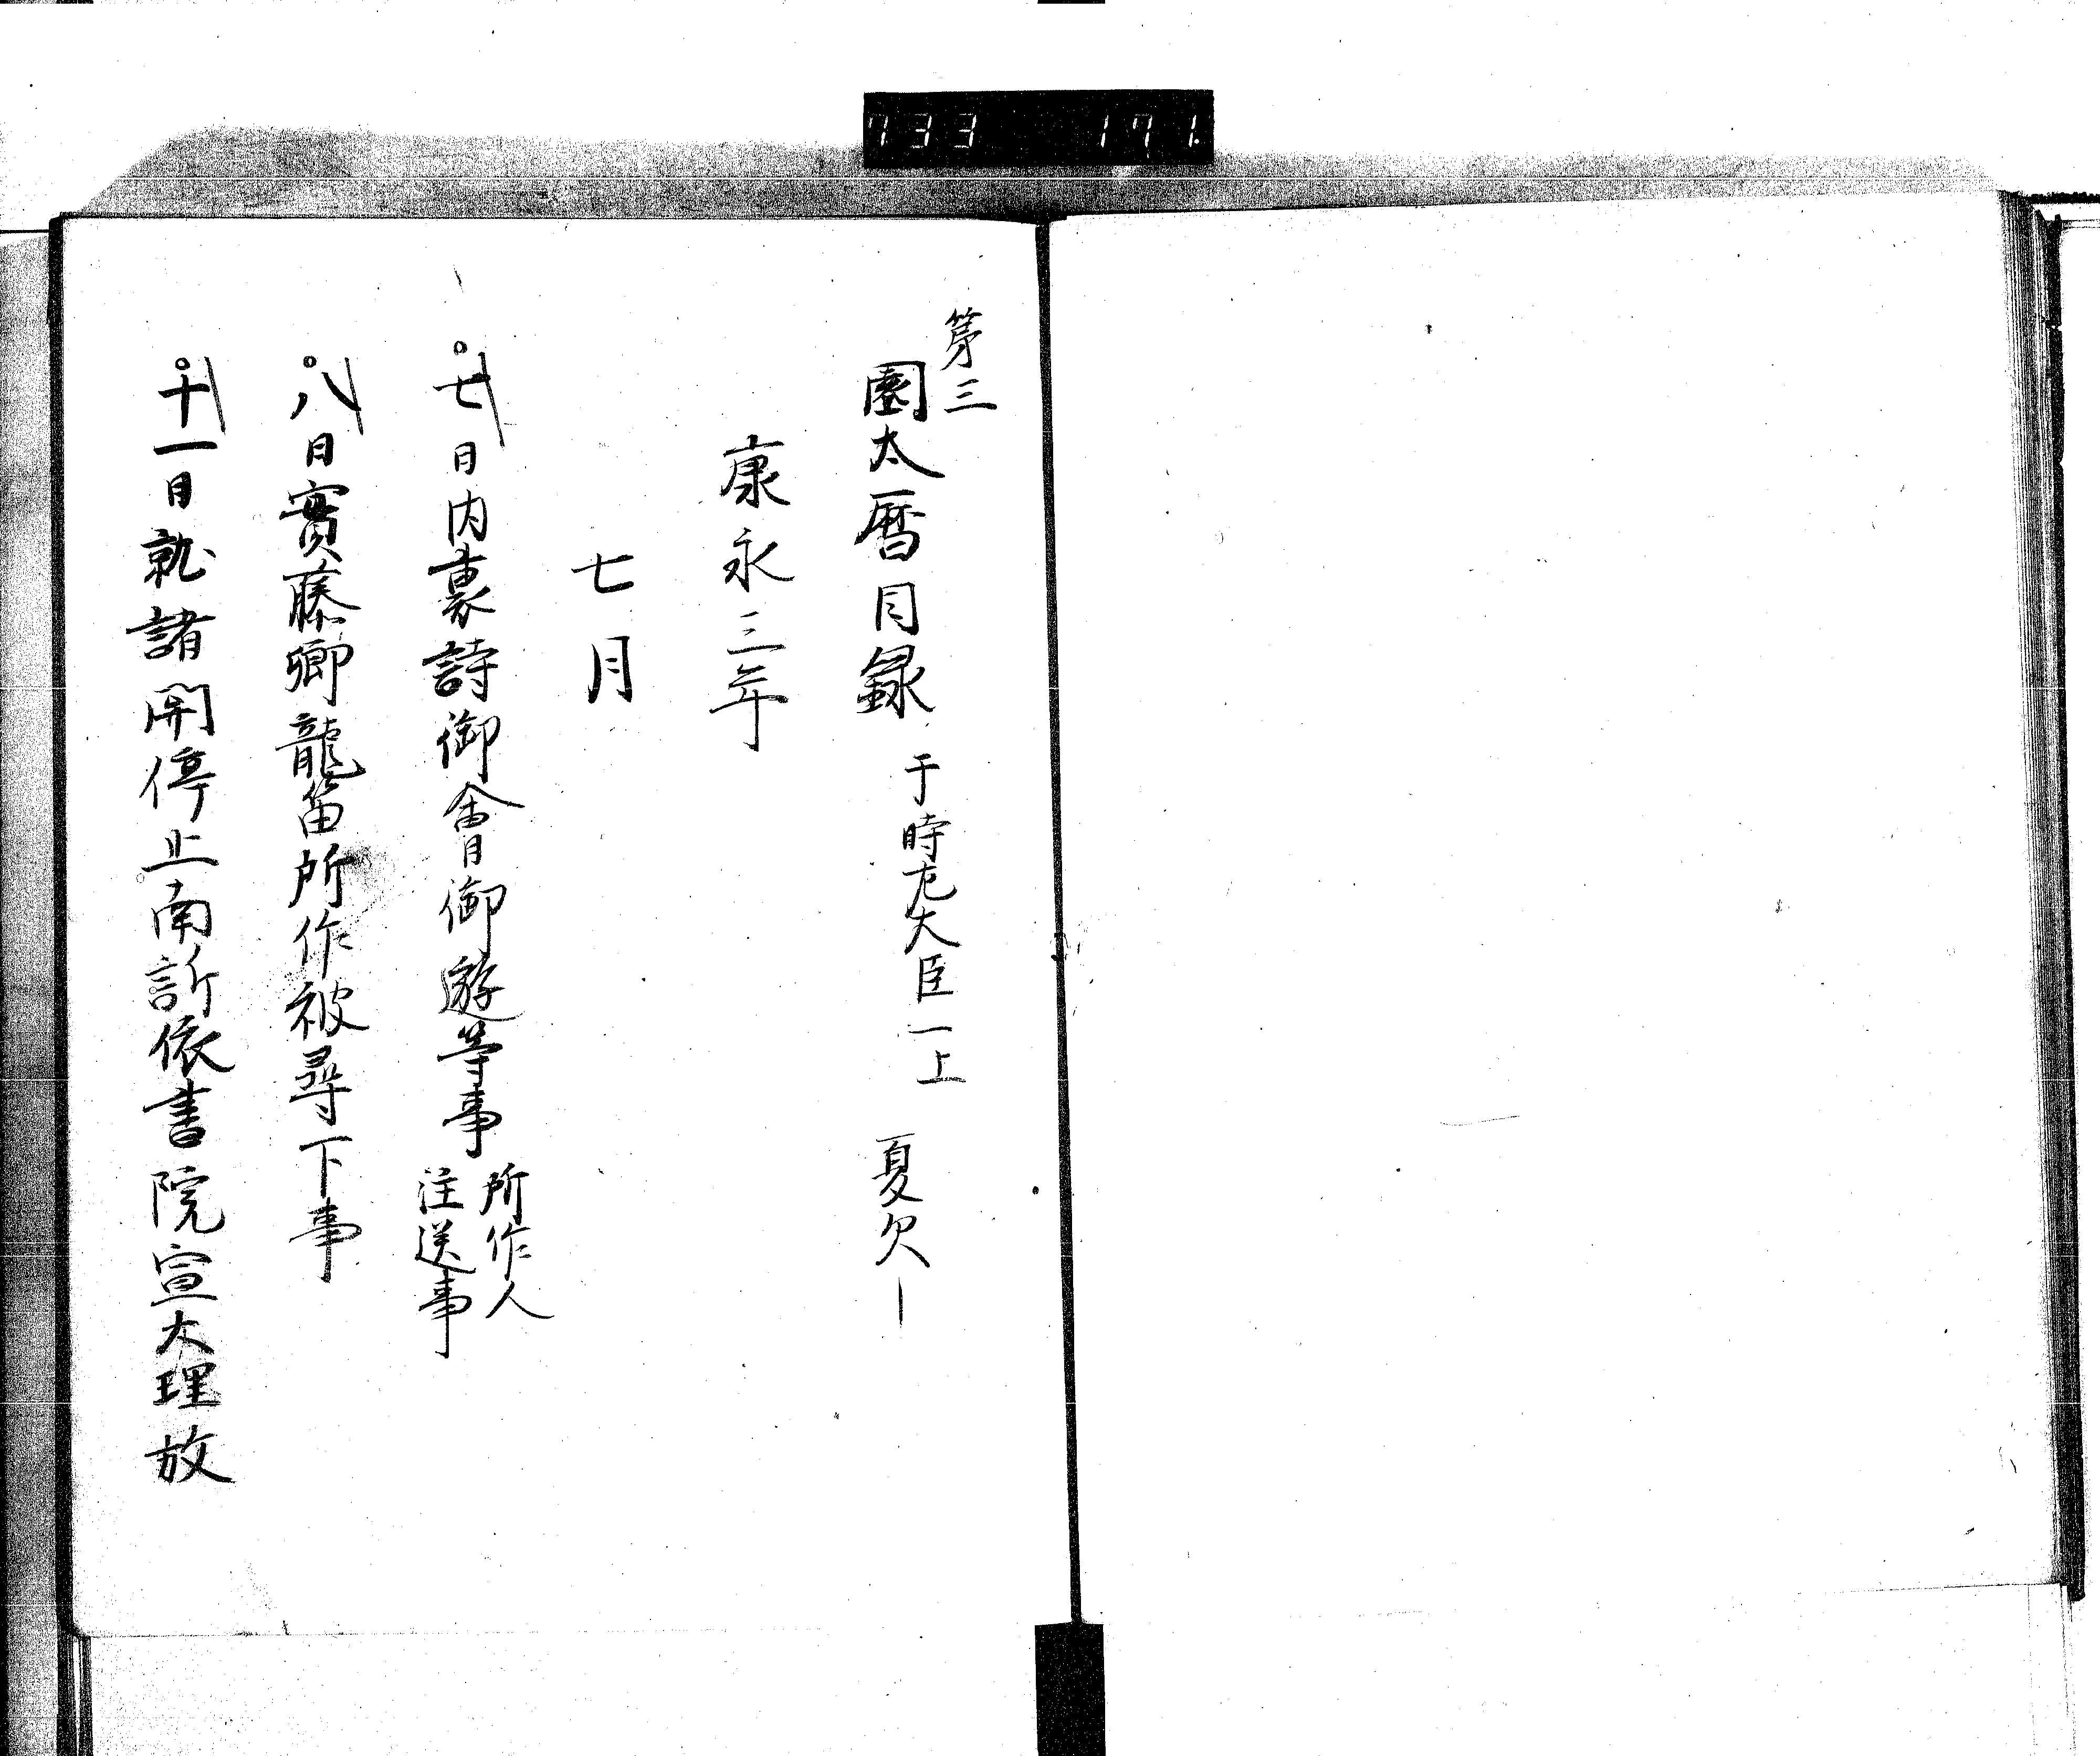 733 171
第三
園太暦目録 于時左大臣一上 夏欠
康永三年
七月
七日内裏詩御會御遊等事 所作人
注送事
八日實藤卿龍笛所作被尋下事
十一日就諸開停止南訴依書院宣大理放